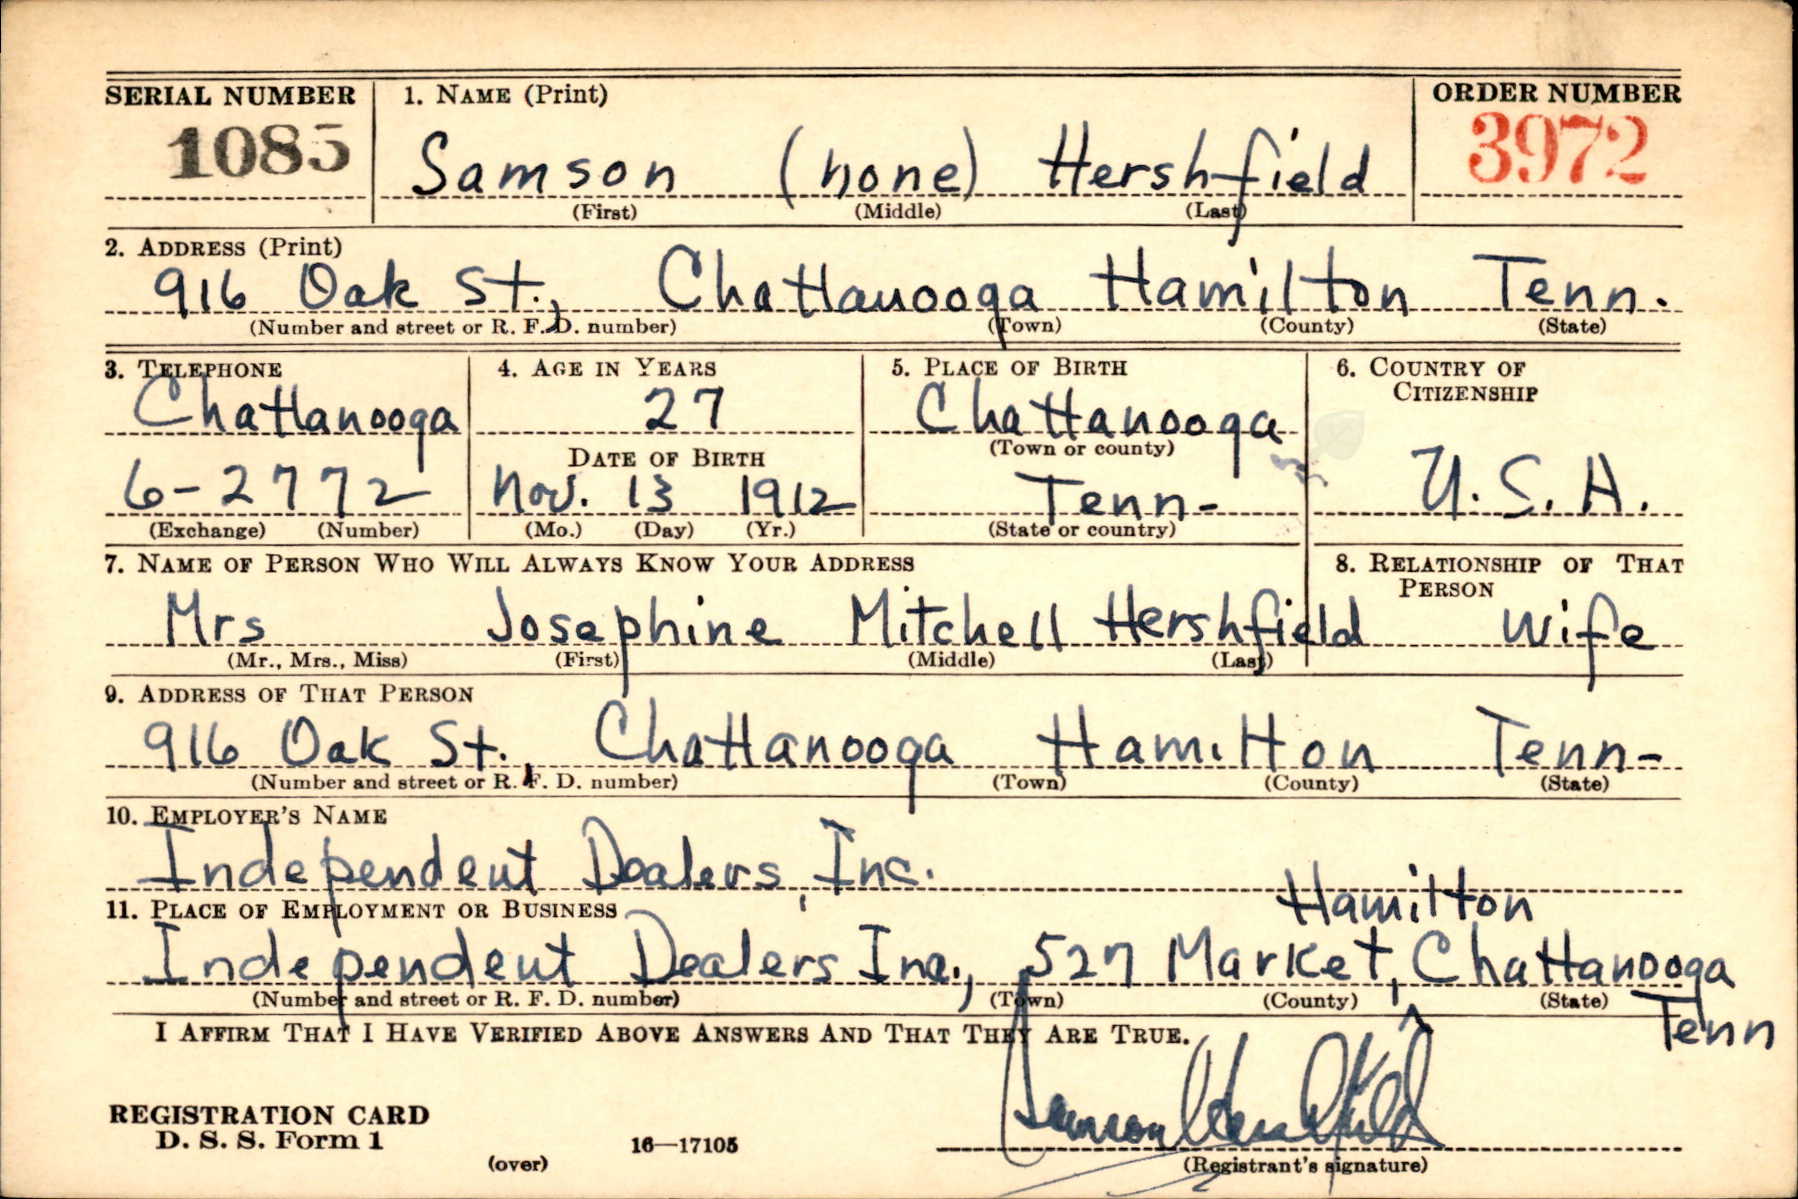 SERIAL NUMBER 1. NAME (Print) ORDER NUMBER
1085 Samson (none) Hershfield 3972
(First) (Middle) (Last)
2. ADDRESS (Print)
916 Oak St., Chattanooga Hamilton Tenn.
(Number and street or R. F. D. number) (Town) (County) (State)
3. TELEPHONE 4. AGE IN YEARS 5. PLACE OF BIRTH 6. COUNTRY OF
CITIZENSHIP
Chattanooga 27 Chattanooga
DATE OF BIRTH (Town or county)
6-2772 Nov. 13 1912 Tenn- U.S.A.
(Exchange) (Number) (Mo.) (Day) (Yr.) (State or country)
7. NAME OF PERSON WHO WILL ALWAYS KNOW YOUR ADDRESS 8. RELATIONSHIP OF THAT
PERSON
Mrs Josephine Mitchell Hershfield Wife
(Mr., Mrs., Miss) (First) (Middle) (Last)
9. ADDRESS OF THAT PERSON
916 Oak St., Chattanooga Hamilton Tenn-
(Number and street or R. F. D. number) (Town) (County) (State)
10. EMPLOYER'S NAME
Independent Dealers, Inc.
Hamilton
11. PLACE OF EMPLOYMENT OR BUSINESS
Independent Dealers Inc., 527 Market, Chattanooga
(Number and street or R. F. D. number) (Town) (County) (State)
Tenn
I AFFIRM THAT I HAVE VERIFIED ABOVE ANSWERS AND THAT THEY ARE TRUE.
Samson Hershfield
REGISTRATION CARD
D. S. S. Form 1 16—17105
(over) (Registrant's signature)